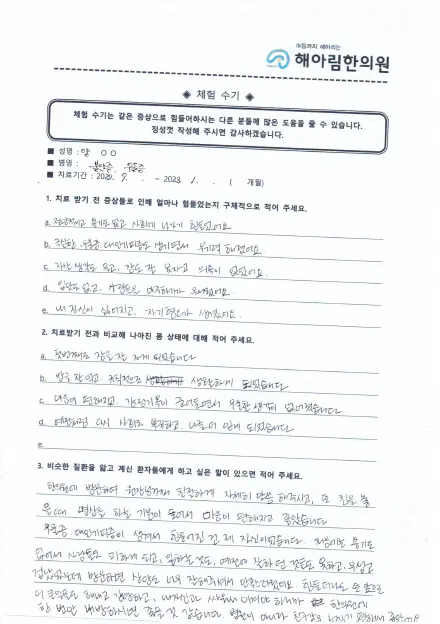 마음까지 헤아리는
해아림한의원
◈ 체험 수기 ◈
체험 수기는 같은 증상으로 힘들어하시는 다른 분들께 많은 도움을 줄 수 있습니다.
정성껏 작성해 주시면 감사하겠습니다.
■ 성명 : 양 ○○
■ 병명 : 불안증, 우울증
■ 치료기간 : 2022. 7. ~ 2023. 1. ( 개월)
1. 치료 받기 전 증상들로 인해 얼마나 힘들었는지 구체적으로 적어 주세요.
a. 용기도 없고 사회에 나가기 힘들었어요
b. 우울증, 대인기피증도 생기면서 무기력 해졌어요
c. 잠도 잘 못자고 의욕이 없었어요.
d. 입맛도 없고, 사람들을 마주하기가 무서웠어요
e. 내 자신이 싫어지고, 자기 생겼어요.
2. 치료받기 전과 비교해 나아진 몸 상태에 대해 적어 주세요.
a. 첫번째로 잠을 잘 자게 되었습니다
b. 밥을 잘 먹고, 규칙적으로 생활하게 되었습니다
c. 마음이 편해지고, 감정기복이 줄어들면서 우울한 생각이 없어졌습니다
d. 예전처럼 다시 사회로 복귀하고, 나름 되었습니다
e
3. 비슷한 질환을 앓고 계신 환자들에게 하고 싶은 말이 있으면 적어 주세요.
한의원에 방문하여 원장님께서 친절하게 자세히 말씀 해주시고, 또 침을 놓
을 때 명상을 하는 기분이 들어서 마음이 편해지고 좋았습니다
우울증, 대인기피증이 생겨서 힘들어진 건 제 자신이었습니다. 처음에는 용기도
없어서 사람들도 피하게 되고, 일하는 것도, 예전에 잘하던 것들도 못하고, 무섭고
겁났었는데 방문하면 상담도 너무 잘해주셔서 만족스러웠어요. 힘들더라도 한 발 앞으로
더 해보고 강해지고, 내 자신과 싸워서 이겨야 하니까 한의원에
한 번만 내방하시면 좋을 것 같습니다. 병원이 아니라